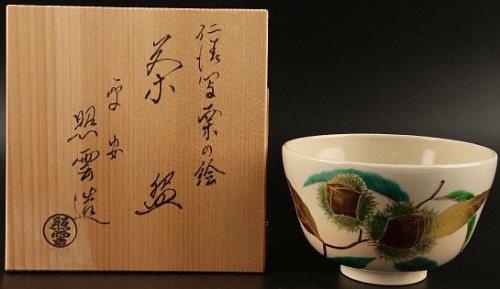 仁清写栗の絵
茶盌
平安
照雲造
照雲